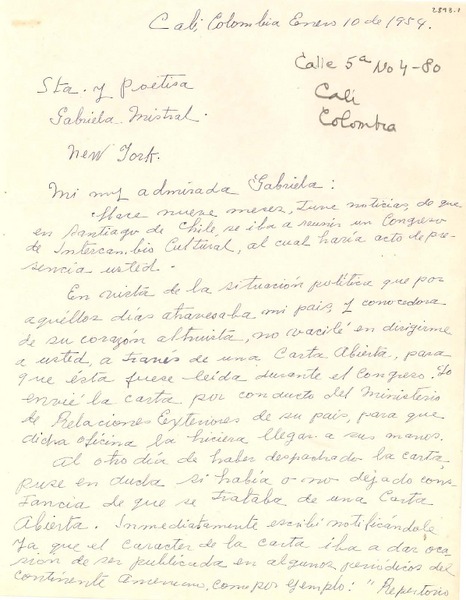 2893.1
Cali, Colombia Enero 10 de 1954.
Calle 5ª No 4-80
Cali
Colombia
Sta. y Poetisa
Gabriela Mistral.
New York.
Mi muy admirada Gabriela:
Hace nueve meses, tuve noticias, de que
en Santiago de Chile, se iba a reunir un Congreso
de Intercambio Cultural, al cual haría acto de pre-
sencia usted.
En vista de la situación política que por
aquéllos días atravesaba mi país, y conocedora
de su corazón altruista, no vacilé en dirigirme
a usted, a través de una Carta Abierta, para
que ésta fuese leída durante el Congreso. Yo
envié la carta por conducto del Ministerio
de Relaciones Exteriores de su país, para que
dicha oficina la hiciera llegar a sus manos.
Al otro día de haber despachado la carta,
puse en duda si había o no dejado cons-
tancia de que se trataba de una Carta
Abierta. Inmediatamente escribí notificándole
ya que el caracter de la carta iba a dar oca-
sión de ser publicada en algunos periódicos del
continente Americano, como por ejemplo: "Repertorio